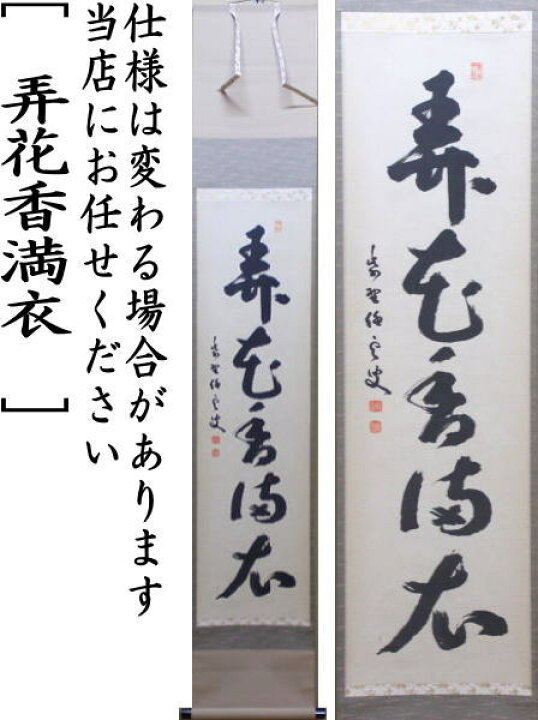 仕様は変わる場合があります
当店にお任せください
[ 弄花香満衣 ]
弄花香満衣
弄花香満衣